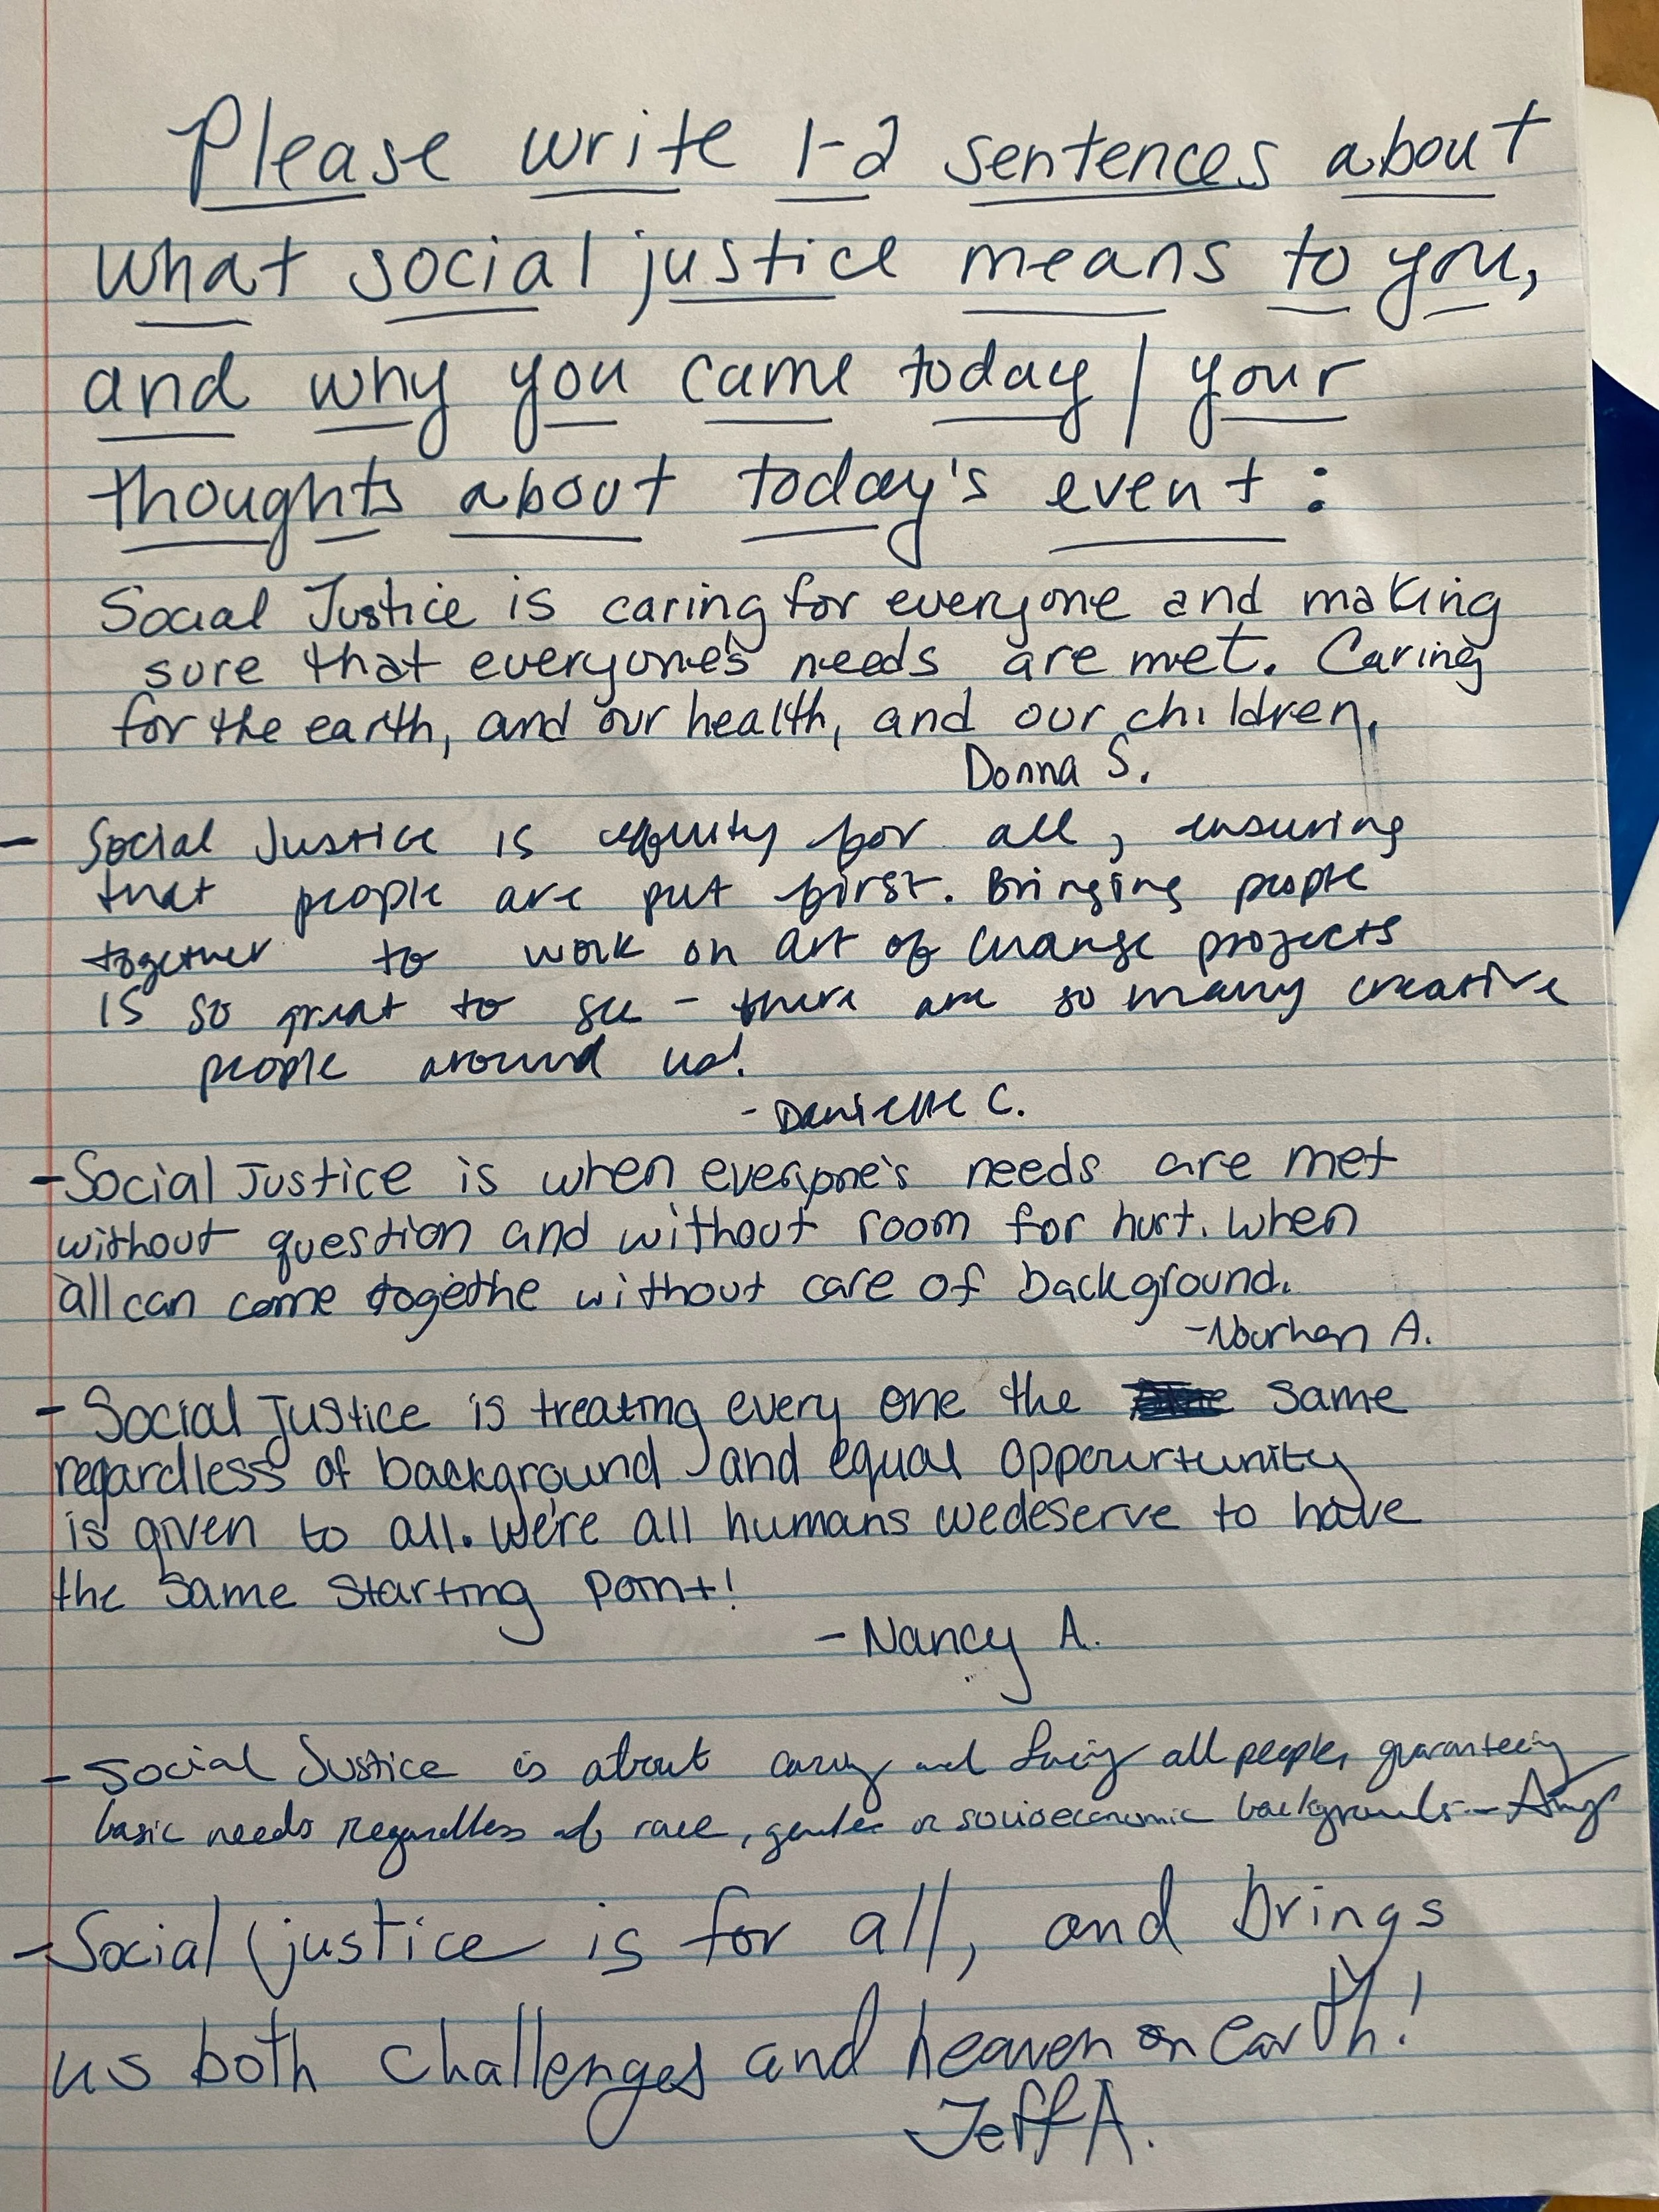 Please write 1-2 sentences about
what social justice means to you,
and why you came today / your
thoughts about today's event :
Social Justice is caring for everyone and making
sure that everyone's needs are met. Caring
for the earth, and our health, and our children.
Donna S.
- Social Justice is equity for all, ensuring
that people are put first. Bringing people
together to work on Art of Change projects
is so great to see - there are so many creative
people around us!
- Danielle C.
- Social Justice is when everyone's needs are met
without question and without room for hurt. When
all can come togethe without care of background.
- Nourhan A.
- Social Justice is treating every one the same
regardless of background and equal oppourtunity
is given to all. We're all humans we deserve to have
the same starting point!
- Nancy A.
- Social Justice is about caring and loving all people, guaranteeing
basic needs regardless of race, gender or socioeconomic backgrounds -
- Social justice is for all, and brings
us both challenges and heaven on earth!
Jeff A.